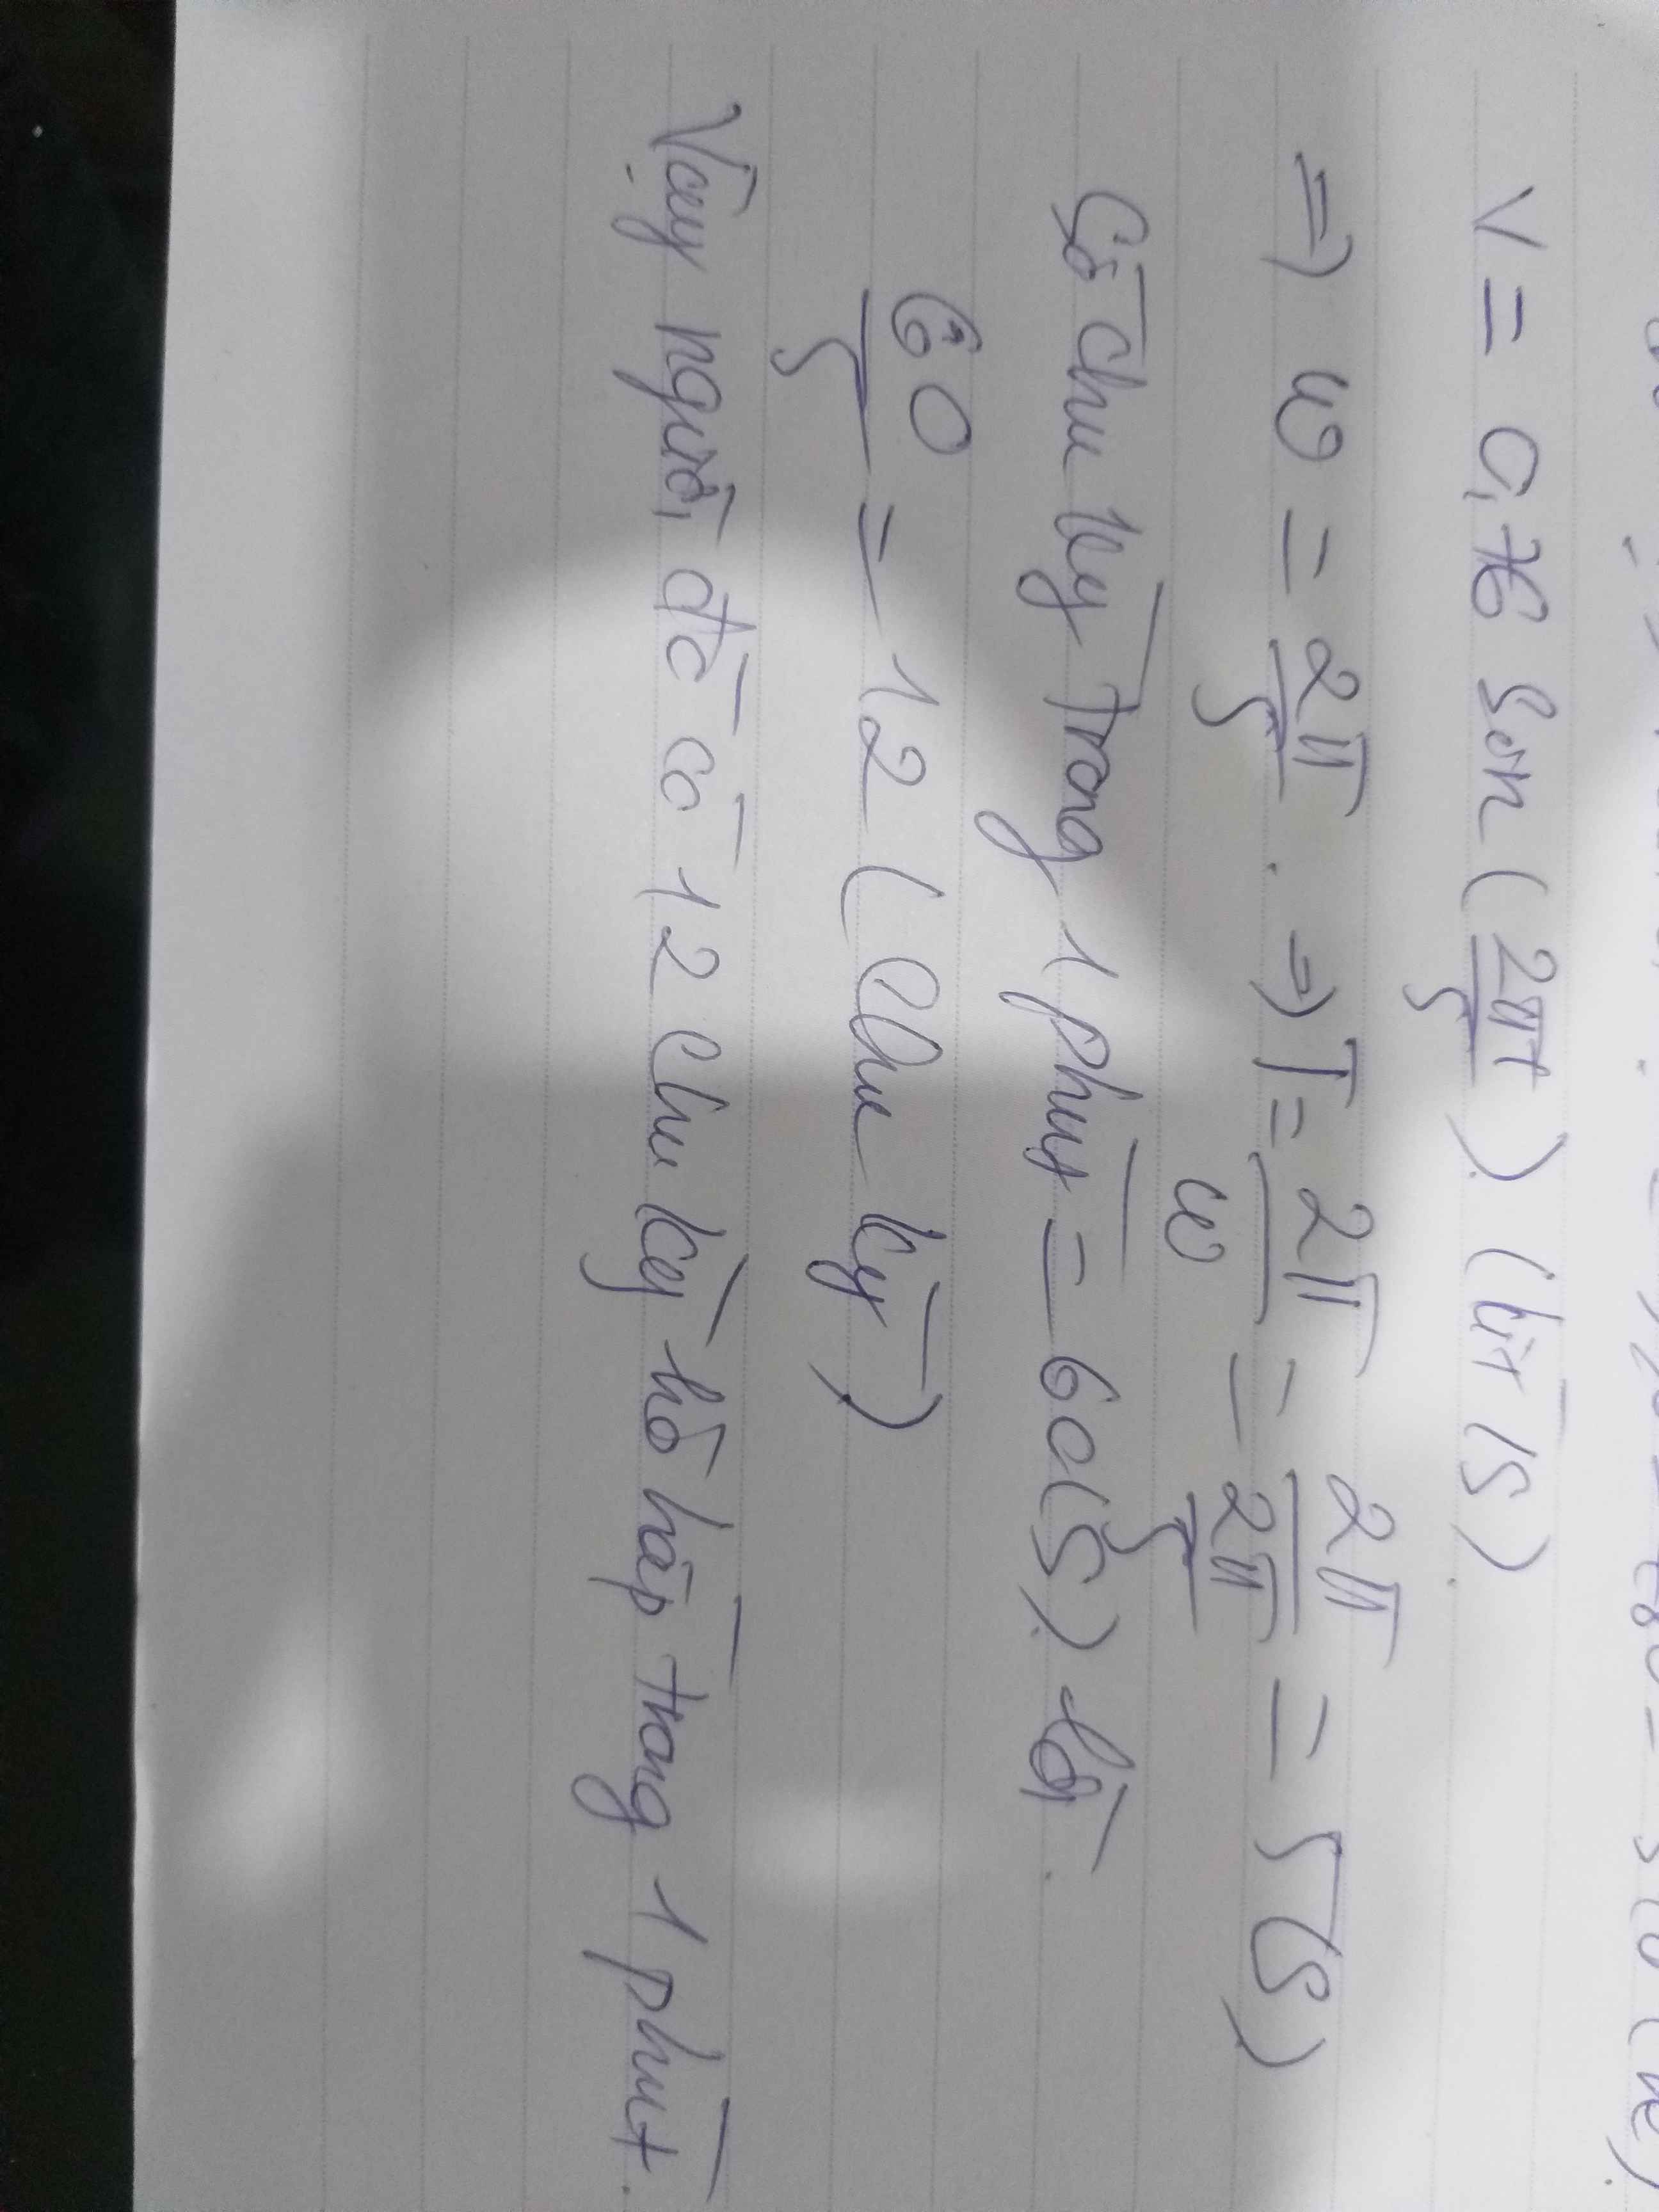 V = 0,76 sin (2πt/5) (lít/s)
=) ω = 2π/5 . =) T = 2π/ω = 2π/(2π/5) = 5 (s)
Số chu kỳ trong 1 phút = 60(s) là.
60/5 = 12 (chu kỳ)
Vậy người đó có 12 chu kỳ hô hấp trong 1 phút.